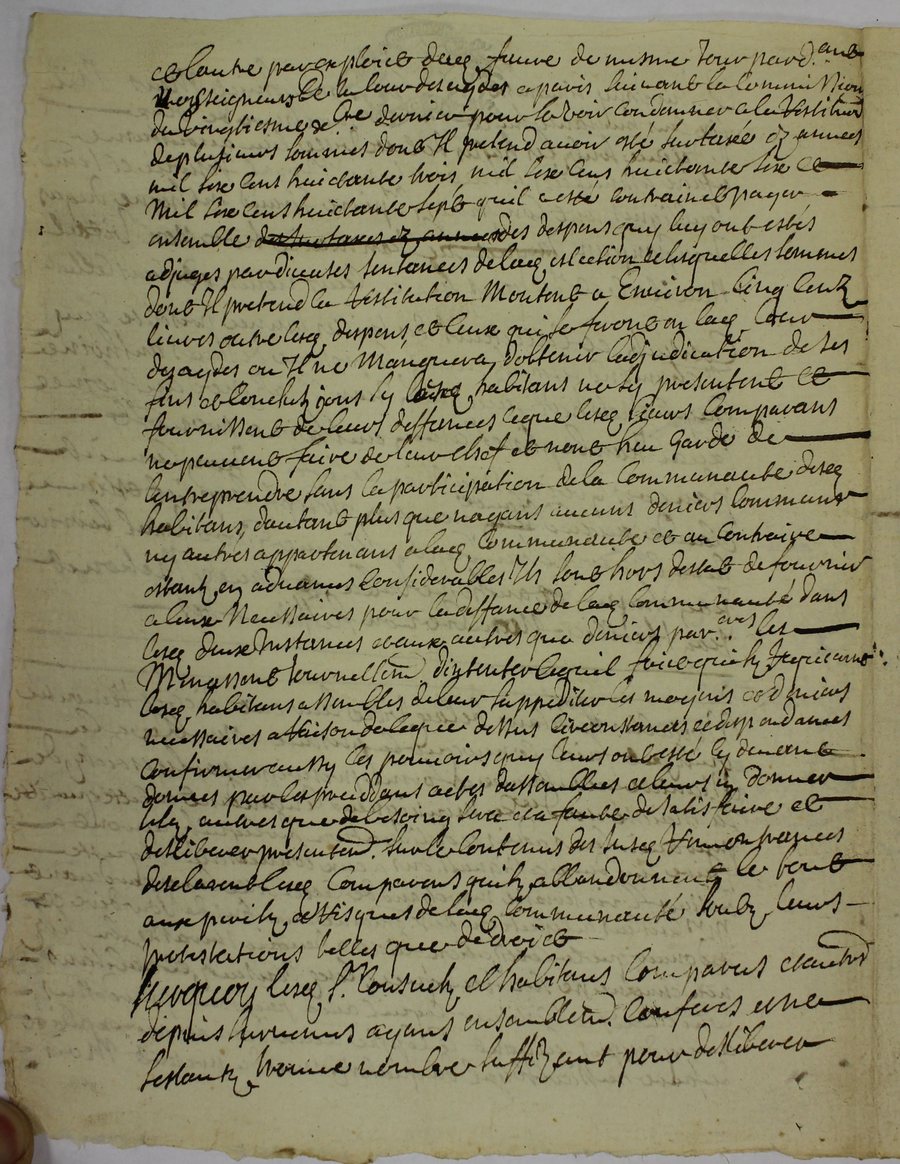 et lautre par exploict dud. favre de mesme Jour pard.ant
Nosseigneurs de la Cour des aydes a paris suivant la Commission
du vingtiesme xbre dernier pour se voir condamner a la restitution
de plusieurs sommes dont Il pretend avoir esté surtaxé ez années
mil six cens huictante trois mil six cens huictante six et
Mil six cens huictante sept quil a esté contrainct payer
ensemble des surtaxes ez années des despens quy luy ont estés
adjuges par diverses sentances de lad. eslection lesquelles sommes
dont Il pretend la restitution Montent a Environ Cinq Centz
livres outre lesd. despens et ceux qui se feront en lad. Cour
des aydes ou Il ne Manquera dobtenir ladjudication de ses
fins et conclusions sy lesd. habitans ne sy presentent et
fournissent de leurs deffances ce que lesd. sieurs Comparans
ne peuvent faire de leur chef et nont heu garde de
lentreprendre sans la participation de la Communauté desd.
habitans, dautant plus que nayans aucuns deniers Communs
ny autres appartenans a lad. Communauté et au Contraire
estantz en advances Considerables Ils sont hors destat de fournir
a ceux Necessaires pour la deffance de lad. Communauté dans
lesd. deux Instances et aux autres que divers par.ers les
Menassent Journellem.t dintenter
lesd. habitans assembles de leur suppediter les moyens et deniers
necessaires a raison de ce que dessus circonstances et despandances
Confirmer aussy les pouvoirs quy leurs ont esté cy devant
donnes par les precedans actes dassemblees et leurs en donner
telz autres que de besoing sera et a faute de satisfaire et
deslibever presentem.t sur le Contenus des susd. remonstrances
declarent lesd. Comparans quilz abbandonnent le tout
aux perilz et risques de lad. Communauté soubz leurs
protestations telles que de droict
Surquoy lesd. s.rs Consulz et habitans Comparans et autres
depuis survenus ayans ensemblem.t Conferes et ne
sestantz trouvé nombre suffizant pour deslibever